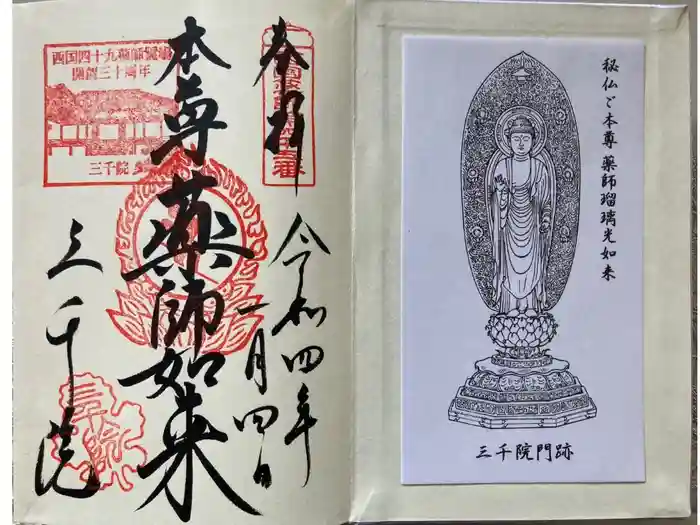 奉拝
令和四年
一月四日
本尊 薬師如来
三千院
西国四十九薬師霊場
開創三十周年
三千院
秘仏ご本尊 薬師瑠璃光如来
三千院門跡